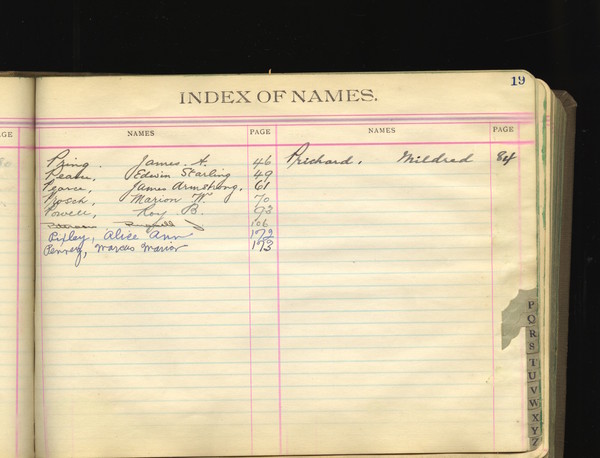 19
INDEX OF NAMES.
AGE
NAMES PAGE NAMES PAGE
Pring. James. A. 46 Prichard. Mildred 84
Edwin Starling 49
Pearce, James Armstrong. 61
Prosch, Marion W. 70
Powell, Roy B. 93
106
Pixley, Alice Ann 172
Penney, Marcus Marion 173
P
Q
R
S
T
U
V
W
X
Y
Z